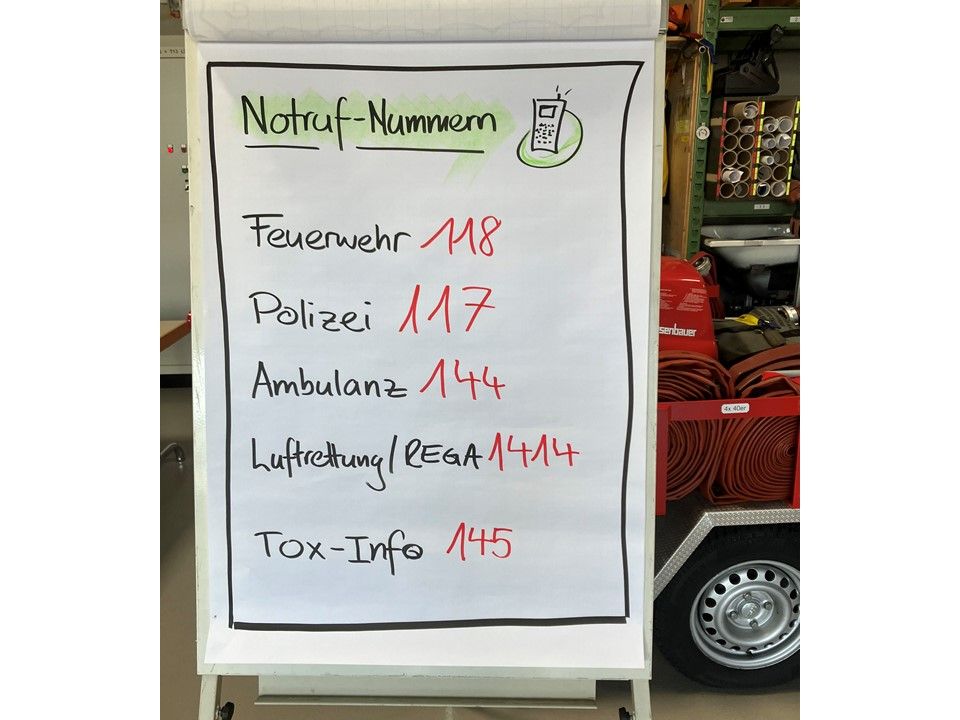 Notruf-Nummern
Feuerwehr 118
Polizei 117
Ambulanz 144
Luftrettung/REGA 1414
Tox-Info 145
senbauer
4x 40er